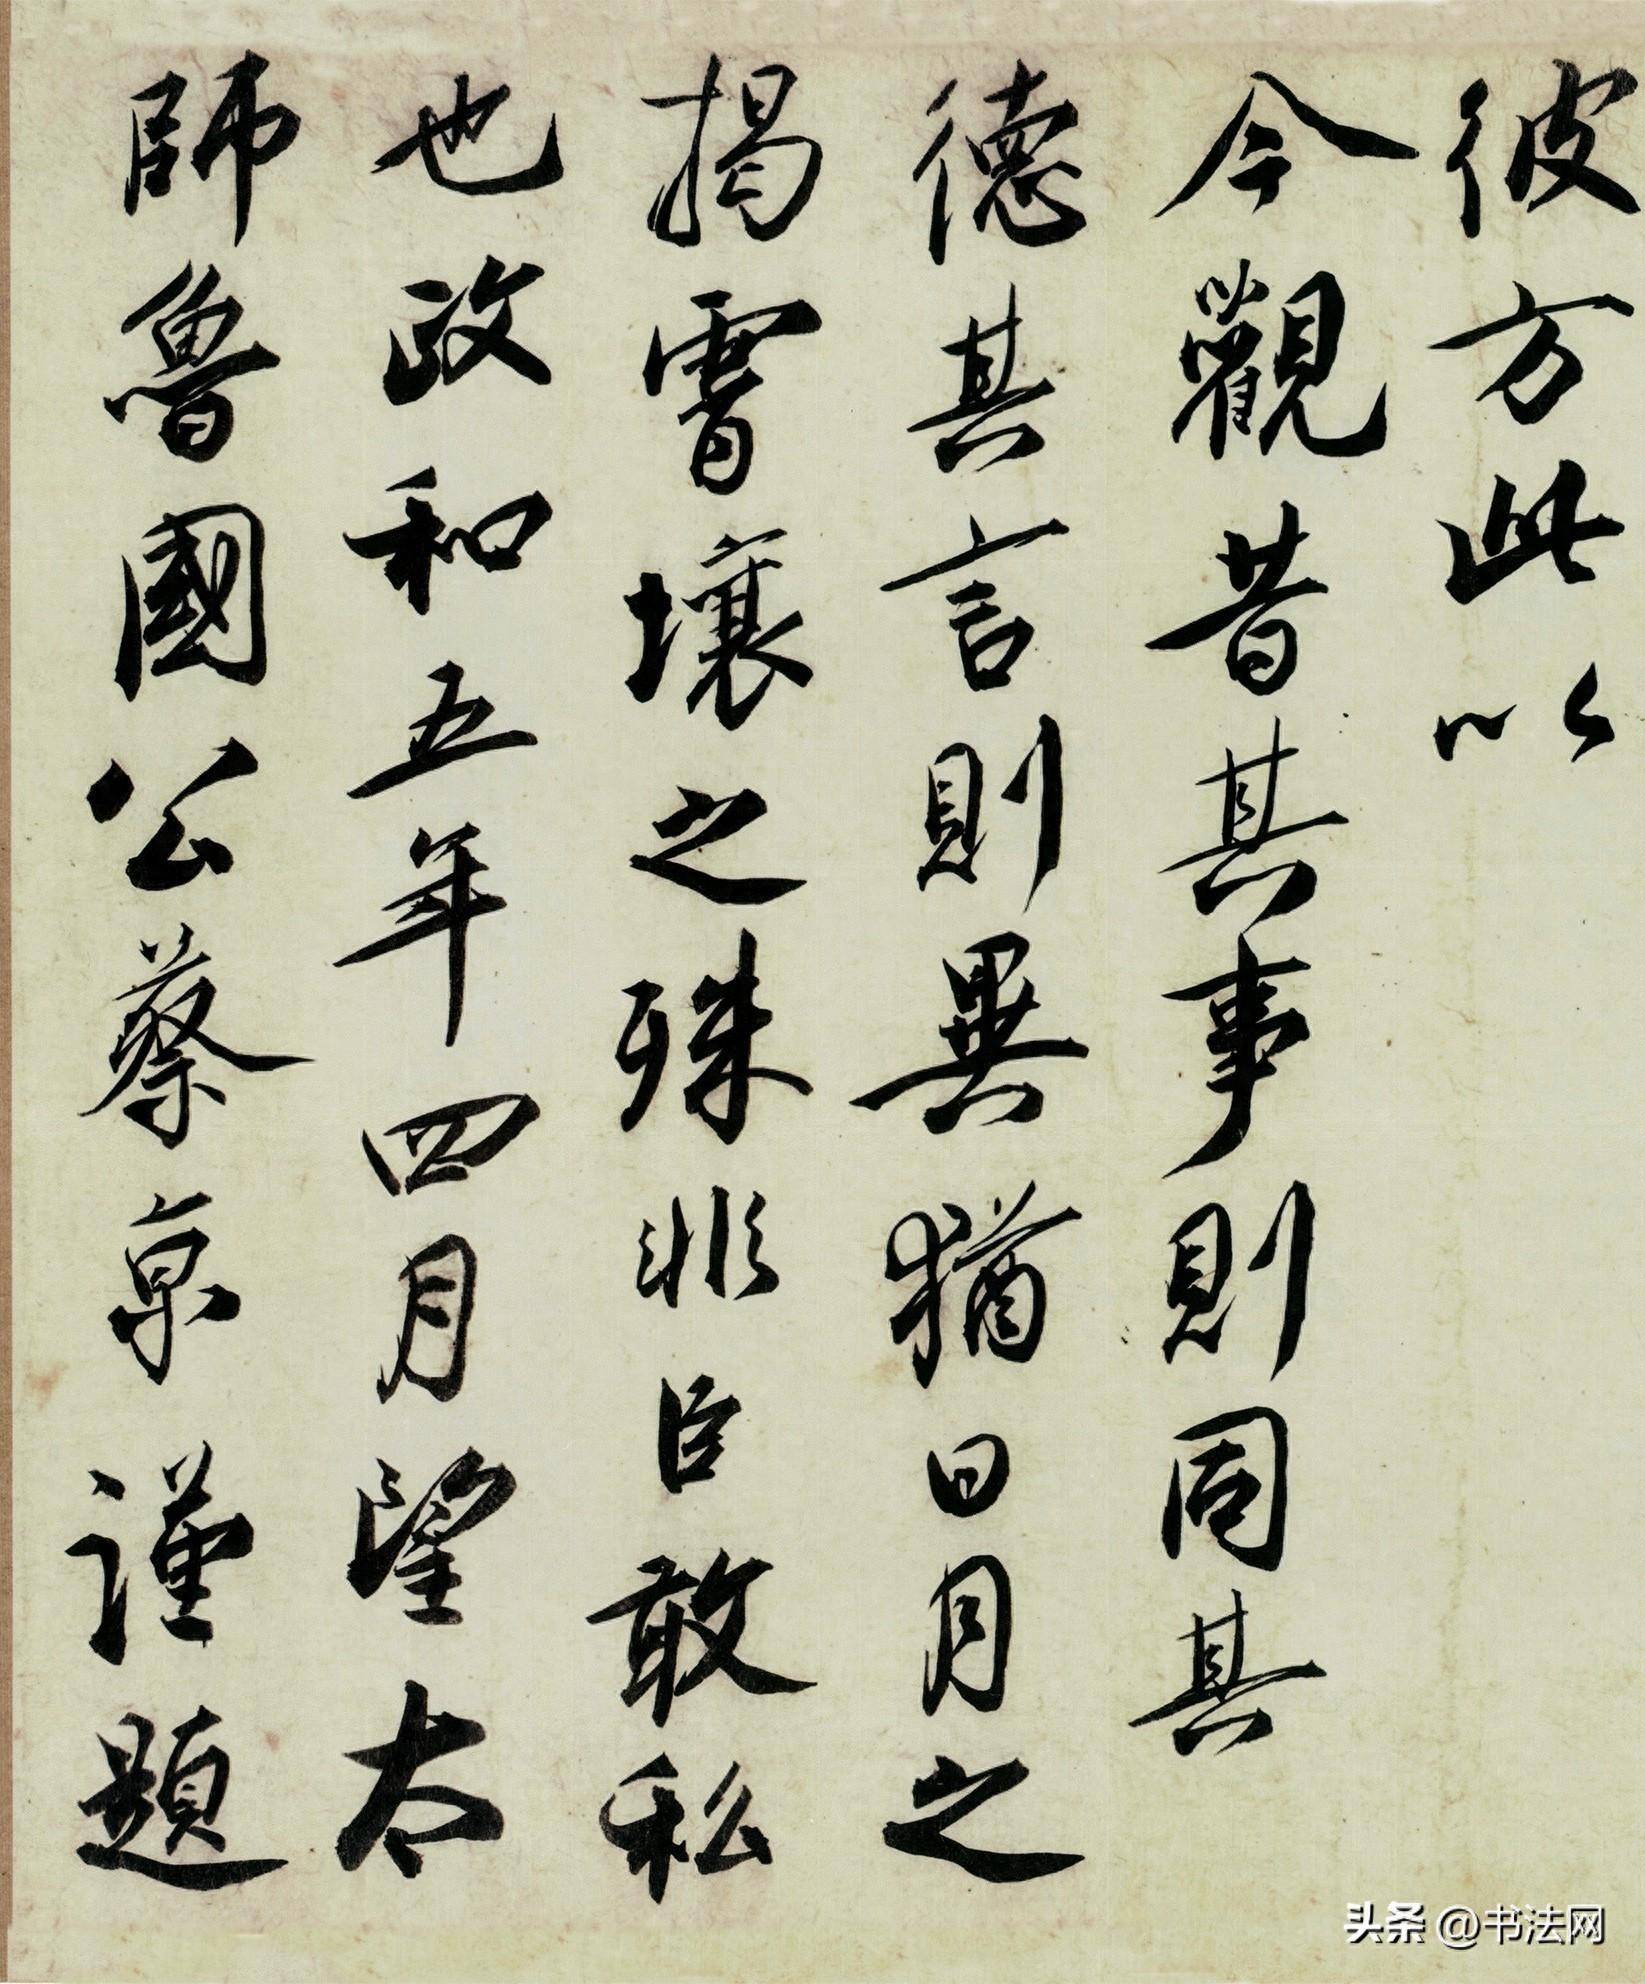 彼方此以
今觀昔其事則同其
德其言則異猶日月之
揭霄壤之殊非臣敢私
也政和五年四月望太
師魯國公蔡京謹題
头条 @书法网